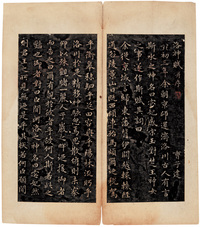 洛神賦
曹子建
黃初三年余朝京師還濟洛川古人有言
斯水之神名曰宓妃感宋玉對楚王
事遂作斯賦其詞曰
余從京域言歸東藩背伊闕越轘轅經
通谷陵景山日既西傾車殆馬煩
乎蘅皋秣駟乎芝田容與乎楊林流眄乎
洛川於是精移神駭忽焉思散俯則未察
仰以殊觀覩一麗人于巖之畔迺援御者
而告之曰爾有覿於彼者乎彼何人斯若此之
豔也御者對曰臣聞河洛之神名曰宓妃
則君王之所見也無迺是乎其狀若何臣願聞